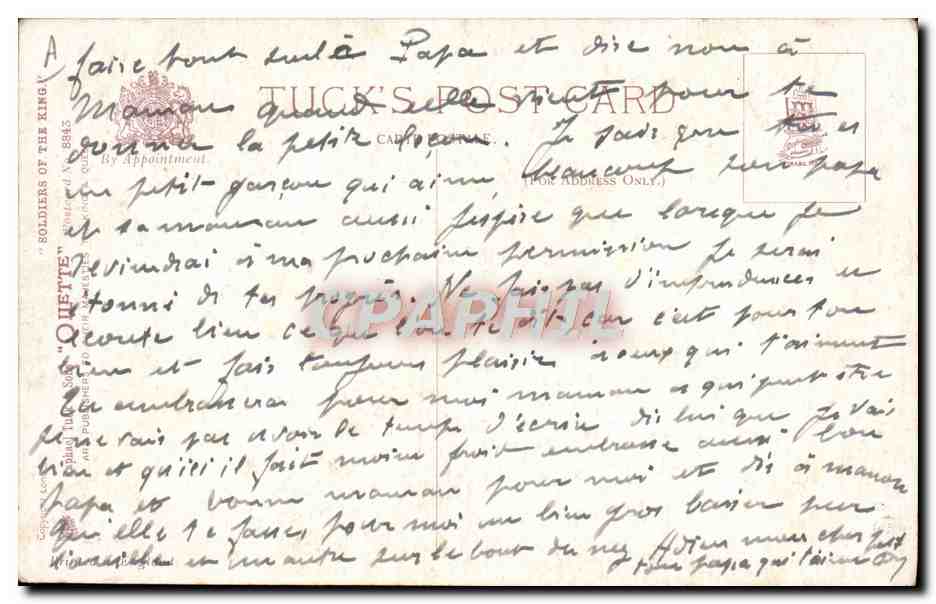 A)
faire tout seul à Papa et dire non à
Maman quand elle vient pour te
donner la petite leçon. Je sais que tu es
un petit garçon qui aime beaucoup son papa
et sa maman aussi j'espère que lorsque je
reviendrai à ma prochaine permission je serai
étonné de tes progrès. Ne fais pas d'imprudences et
écoute bien ce que l'on te dit car c'est pour ton
bien et fais toujours plaisir à ceux qui t'aiment
Tu embrasseras pour moi maman à qui peut être
je ne vais pas avoir le temps d'écrire dis lui que je vais
bien et qu'ici il fait moins froid embrasse aussi bon
papa et bonne maman pour moi et dis à maman
qu'elle te fasse pour moi un bien gros baiser sur
l'oreille et un autre sur le bout du nez Adieu mon cher petit
ton papa qui t'aime
TUCK'S POST CARD
CARTE POSTALE.
(FOR ADDRESS ONLY.)
By Appointment.
"SOLDIERS OF THE KING."
"OILETTE"
8843
CPAPHIL